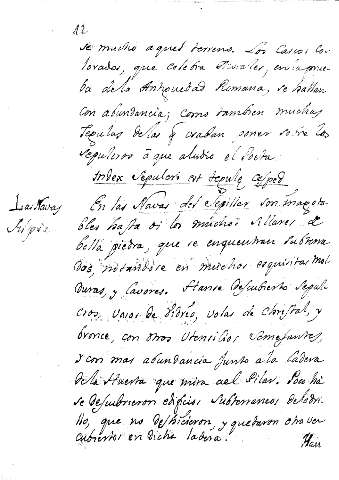 22
se mucho aquel terreno. Los Cascos Co-
lorados, que celebra Morales, en prue-
ba de la Antiguedad Romana, se hallan
con abundancia; como tambien muchas
Tegulas de las q usaban poner sobre los
Sepulcros à que aludio el Poeta
Index Sepulcri est tegula cesped
Las Navas En las Navas del Sepillar son innota-
bles hasta oi los muchos Sillares de
bella piedra, que se encuentran Subterra-
dos, notandose en muchos exquisitas mol-
duras, y Lavores. Hanse Descubierto Sepul-
cros, Vasos de Vidrio, volas de Christal, y
bronce, con otros Utensilios Semejantes,
y con mas abundancia junto a la Ladera
de la Huerta que mira ael Pilar. Poco há
se Descubrieron edificios Subterraneos de ladri-
llo, que no deshicieron, y quedaron otra ver
cubiertos en dicha ladera.
Han